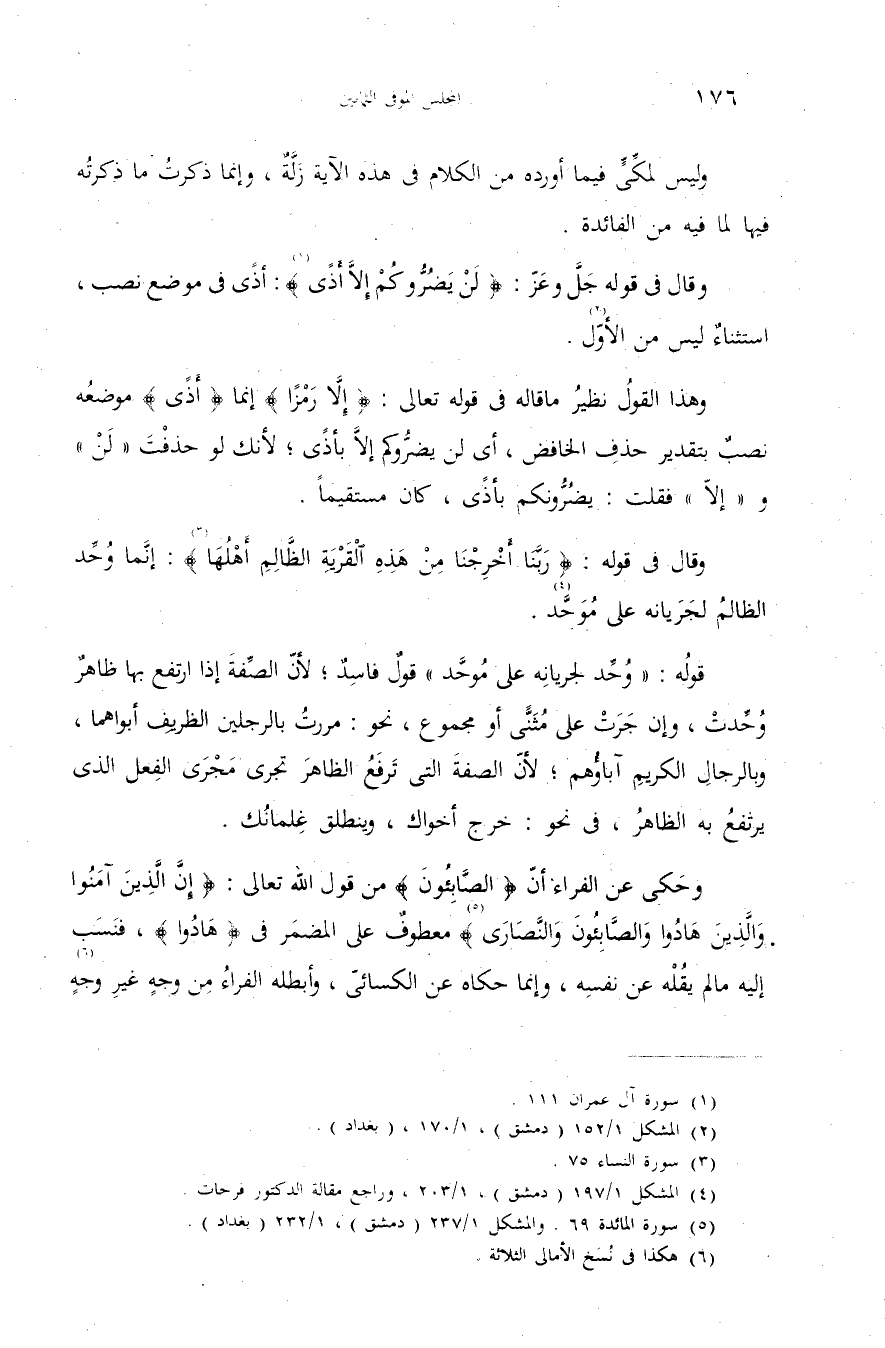 ١٧٦ المجلس الموفى الثمانين
وليس لمكِّىٍّ فيما أورده من الكلام فى هذه الآية زَلَّةٌ ، وإنما ذكرتُ ما ذكرتُه
فيها لما فيه من الفائدة .
وقال فى قوله جَلَّ وعَزّ : ﴿ لَنْ يَضُرُّوكُمْ إِلاَّ أَذًى ﴾(١) : أذًى فى موضع نصب ،
استثناءٌ ليس من الأوّل(٢) .
وهذا القولُ نظيرُ ماقاله فى قوله تعالى : ﴿ إِلَّا رَمْزًا ﴾ إنما ﴿ أَذًى ﴾ موضعُه
نصبٌ بتقدير حذفِ الخافض ، أى لن يضرُّوكم إلاَّ بأذًى ؛ لأنك لو حذفْتَ « لَنْ »
و « إلاّ » فقلت : يضُرُّونكم بأذًى ، كان مستقيماً .
وقال فى قوله : ﴿ رَبَّنَا أَخْرِجْنَا مِنْ هَذِهِ ٱلْقَرْيَةِ الظَّالِمِ أَهْلُهَا ﴾(٣) : إنَّما وُحِّد
الظالمُ لجَرَيانه على مُوَحَّد(٤) .
قولُه : « وُحِّد لجريانِه على مُوحَّد » قولٌ فاسِدٌ ؛ لأنّ الصِّفةَ إذا ارتفع بها ظاهرٌ
وُحِّدتْ ، وإن جَرَتْ على مُثَنًّى أو مجموع ، نحو : مررتُ بالرجلين الظريفِ أبواهما ،
وبالرجالِ الكريمِ آباؤُهم ؛ لأنّ الصفةَ التى تَرفَعُ الظاهرَ تجرى مَجْرَى الفِعل الذى
يرتفعُ به الظاهرُ ، فى نحو : خرج أخواك ، وينطلق غِلمانُك .
وحَكى عن الفراء أنّ ﴿ الصَّابِئُونَ ﴾ من قول الله تعالى : ﴿ إِنَّ الَّذِينَ آمَنُوا
وَالَّذِينَ هَادُوا وَالصَّابِئُونَ وَالنَّصَارَى ﴾(٥) معطوفٌ على المضمَر فى ﴿ هَادُوا ﴾ ، فنَسَب
إليه مالم يقُلْه عن نفسِه ، وإنما حكاه عن الكسائىّ ، وأبطله الفراءُ مِن وجهٍ غيرِ وجهٍ(٦)
(١) سورة آل عمران ١١١ .
(٢) المشكل ١٥٢/١ ( دمشق ) ، ١٧٠/١ ، ( بغداد ) .
(٣) سورة النساء ٧٥ .
(٤) المشكل ١٩٧/١ ( دمشق ) ، ٢٠٣/١ ، وراجع مقالة الدكتور فرحات .
(٥) سورة المائدة ٦٩ . والمشكل ٢٣٧/١ ( دمشق ) ، ٢٣٢/١ ( بغداد ) .
(٦) هكذا فى نُسَخ الأمالى الثلاثة .